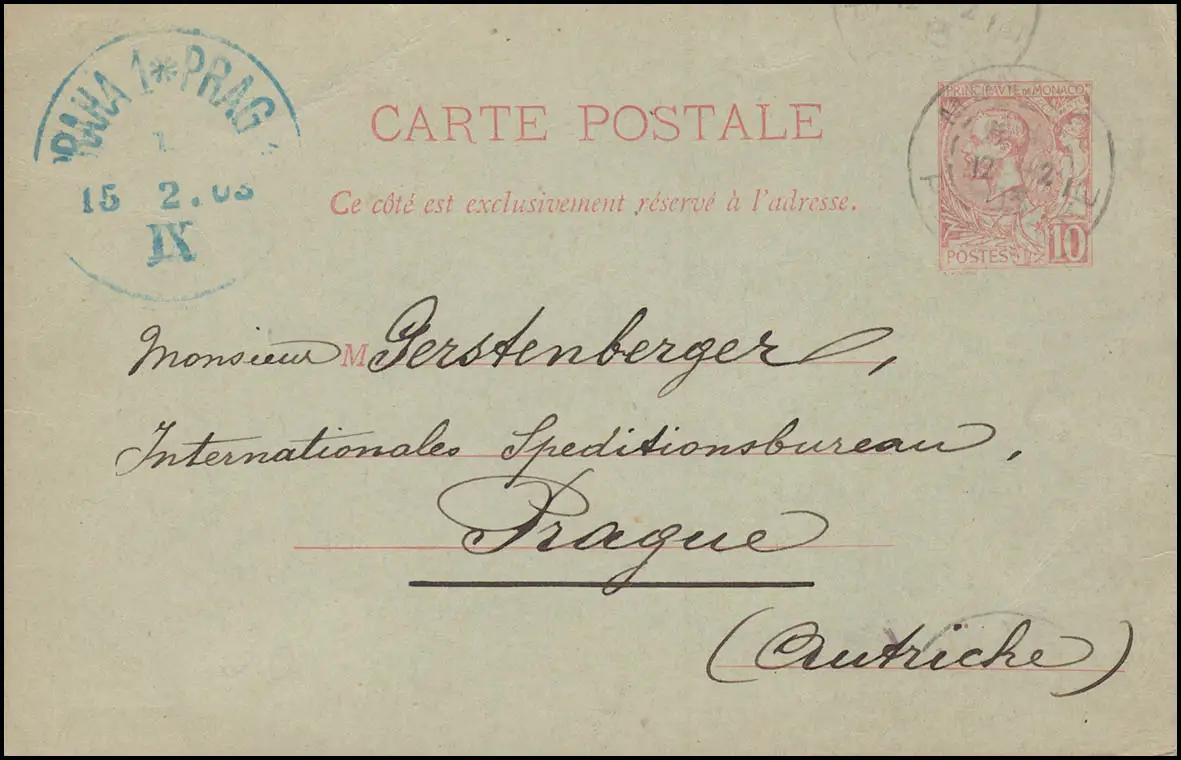 PRAHA 1 * PRAG
1
15 2.03
IX
CARTE POSTALE
Ce côté est exclusivement réservé à l'adresse.
PRINCIPAVTE DE MONACO
12 2
POSTES 10
Monsieur M Gerstenberger,
Internationales Speditionsbureau,
Prague
(Autriche)